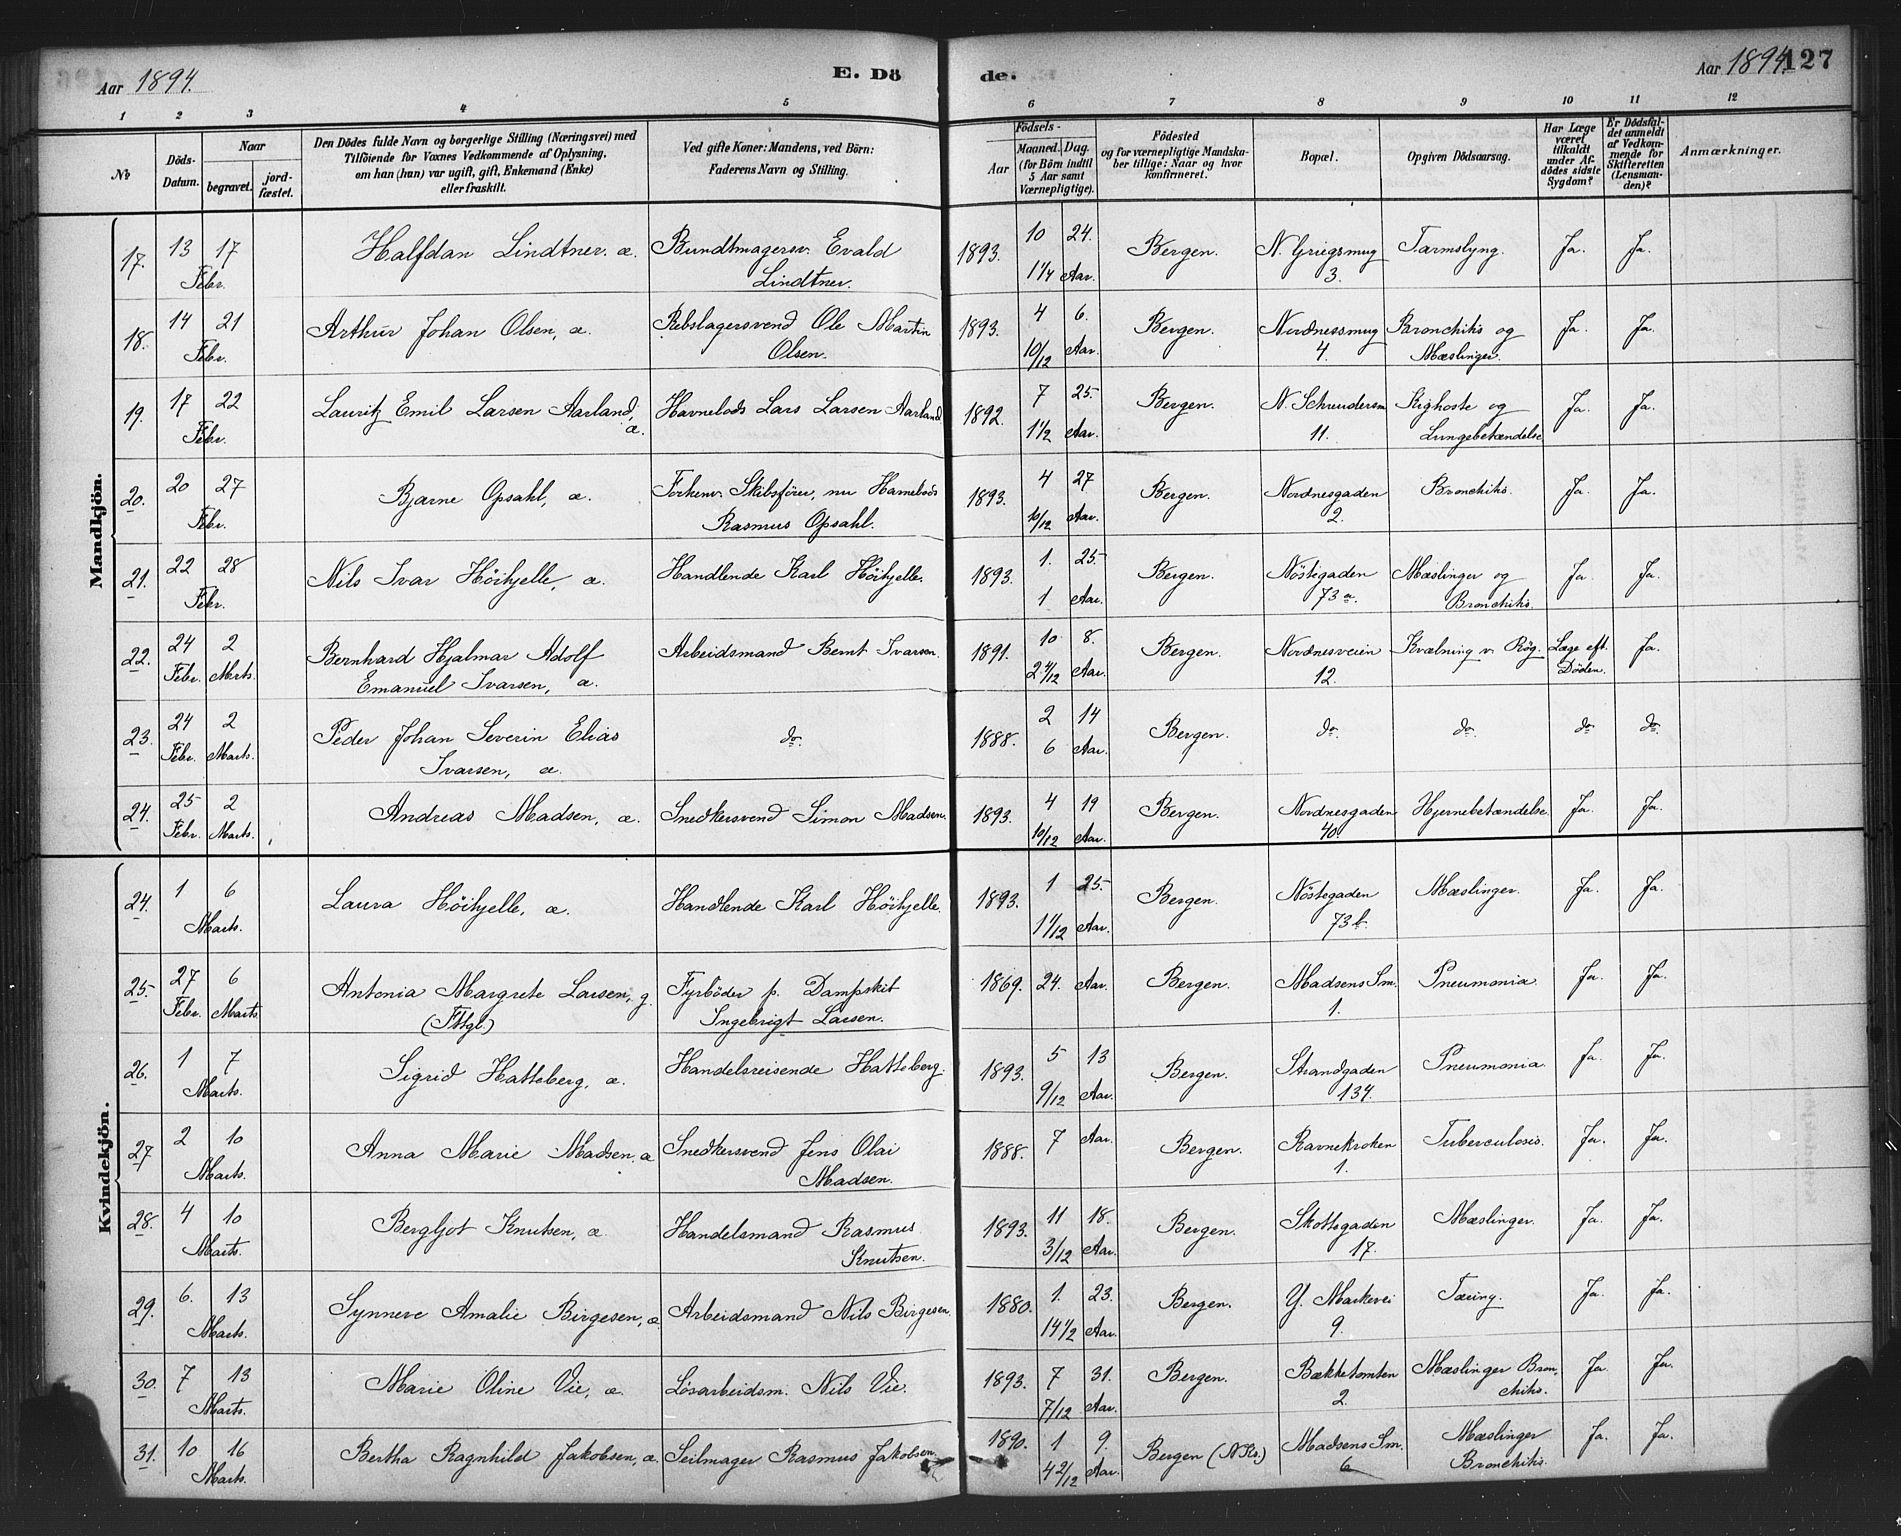 Aar 1894. E. Dö de. Aar 1894. 127
1 2 3 4 5 6 7 8 9 10 11 12
No
Döds-Datum.
Naar
begravet.
jordfæstet.
Den Dödes fulde Navn og borgerlige Stilling (Næringsvei) med
Tilföiende for Voxnes Vedkommende af Oplysning,
om han (hun) var ugift, gift, Enkemand (Enke)
eller fraskilt.
Ved gifte Koner: Mandens, ved Börn:
Faderens Navn og Stilling.
Födsels-
Aar
Maaned. Dag.
(for Börn indtil
5 Aar samt
Værnepligtige).
Födested
og for værnepligtige Mandskaber tillige: Naar og hvor
konfirmeret.
Bopæl.
Opgiven Dödsaarsag.
Har Læge
været
tilkaldt
under Afdödes sidste
Sygdom?
Er Dödsfaldet anmeldt
af Vedkommende for
Skifteretten
(Lensmanden)?
Anmærkninger.
Mandkjön.
17. 13 17 Halfdan Lindtner. æ. Bundtmagersv. Evald 1893. 10 24. Bergen. N. Griegsmug Tarmslyng. Ja. Ja.
Febr. Lindtner. 1 1/4 Aar. 3.
18. 14 21 Arthur Johan Olsen, æ. Rebslagersvend Ole Martin 1893. 4 6. Bergen. Nordnessmug Bronchitis og Ja. Ja.
Febr. Olsen. 10/12 Aar. 4. Mæslinger.
19. 17 22 Lauritz Emil Larsen Aarland, Havnelods Lars Larsen Aarland 1892. 7 25. Bergen. N. Schreudersm Kighoste og Ja. Ja.
Febr. æ. 1 1/2 Aar. 11. Lungebetændelse
20. 20 27 Bjarne Opsahl, æ. Forhenv. Skibsförer, nu Havnelods 1893. 4 27 Bergen. Nordnesgaden Bronchitis. Ja. Ja.
Febr. Rasmus Opsahl. 10/12 Aar. 2.
21. 22 28 Nils Ivar Höihjelle, æ. Handlende Karl Höihjelle. 1893. 1. 25. Bergen. Nöstegaden Mæslinger og Ja Ja.
Febr. 1 Aar. 73 a. Bronchitis.
22. 24 2 Bernhard Hjalmar Adolf Arbeidsmand Bernt Ivarsen. 1891. 10 8. Bergen. Nordnesveien Kvælning v. Røg. Læge eft. Ja.
Febr. Marts. Emanuel Ivarsen, æ. 2 4/12 Aar. 12. Döden.
23. 24 2 Peder Johan Severin Elias do. 1888. 2 14 Bergen. do. do. do. do.
Febr. Marts. Ivarsen, æ. 6 Aar.
24. 25 2 Andreas Madsen, æ. Snedkersvend Simon Madsen. 1893. 4 19 Bergen. Nordnesgaden Hjernebetændelse. Ja. Ja.
Febr. Marts. 10/12 Aar. 40.
Kvindekjön.
24. 1 6 Laura Höihjelle, æ. Handlende Karl Höihjelle. 1893. 1 25. Bergen. Nöstegaden Mæslinger. Ja. Ja.
Marts. 1 1/12 Aar. 73 b.
25. 27 6 Antonia Margrete Larsen, g. Fyrböder p. Dampskib 1869. 24. Aar. Bergen. Madsens Sm. Pneumonia. Ja. Ja.
Febr. Marts. Ingebrigt Larsen. 1.
26. 1 7 Sigrid Hatteberg, æ. Handelsreisende Hatteberg. 1893. 5 13 Bergen. Strandgaden Pneumonia. Ja. Ja.
Marts. 9/12 Aar. 134.
27 2 10 Anna Marie Madsen. æ Snedkersvend Jens Olai 1888. 7 Aar. Bergen. Ravnekroken Tuberculosis. Ja. Ja.
Marts. Madsen. 1.
28. 4 10 Bergljot Knutsen, æ Handelsmand Rasmus 1893. 11 18. Bergen. Skottegaden Mæslinger. Ja. Ja.
Marts. Knutsen. 3/12 Aar. 17.
29. 6. 13 Synneve Amalie Birgesen, æ Arbeidsmand Nils Birgesen. 1880. 1. 23. Bergen. Y. Markevei Tæring. Ja. Ja.
Marts. 14 1/2 Aar. 9.
30. 7 13 Marie Oline Vie, æ. Lösarbeidsm. Nils Vie. 1893. 7 31. Bergen. Bækketomten Mæslinger Bron- Ja. Ja.
Marts. 7/12 Aar. 2. chitis.
31. 10 16 Bertha Ragnhild Jakobsen, æ. Seilmager Rasmus Jakobsen. 1890. 1 9. Bergen (N. K.) Madsens Sm. Mæslinger Ja. Ja.
Marts. 4 2/12 Aar. 6 Bronchitis.